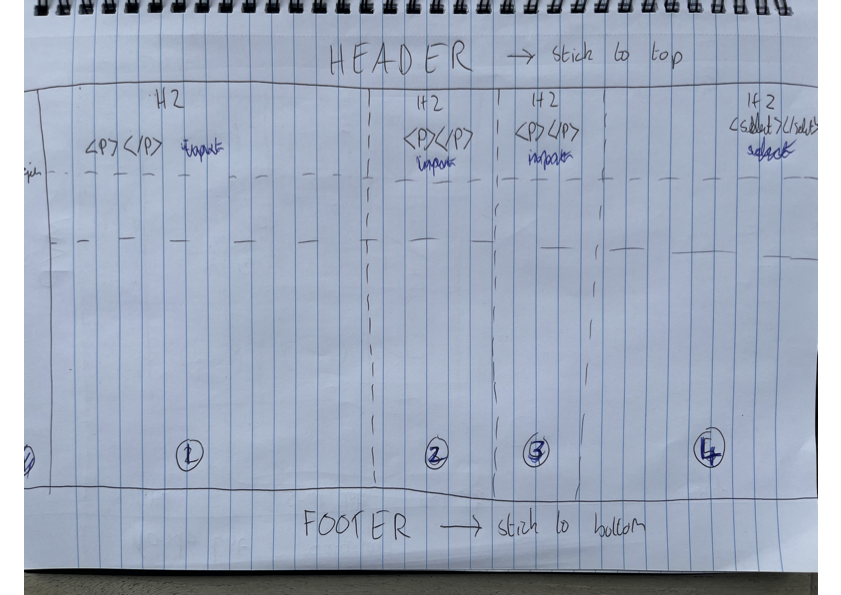 HEADER → stick to top
H2
H2
H2
H2
<P></P> input
<P></P>
input
<P></P>
input
<select></select>
select
1
2
3
4
FOOTER → stick to bottom